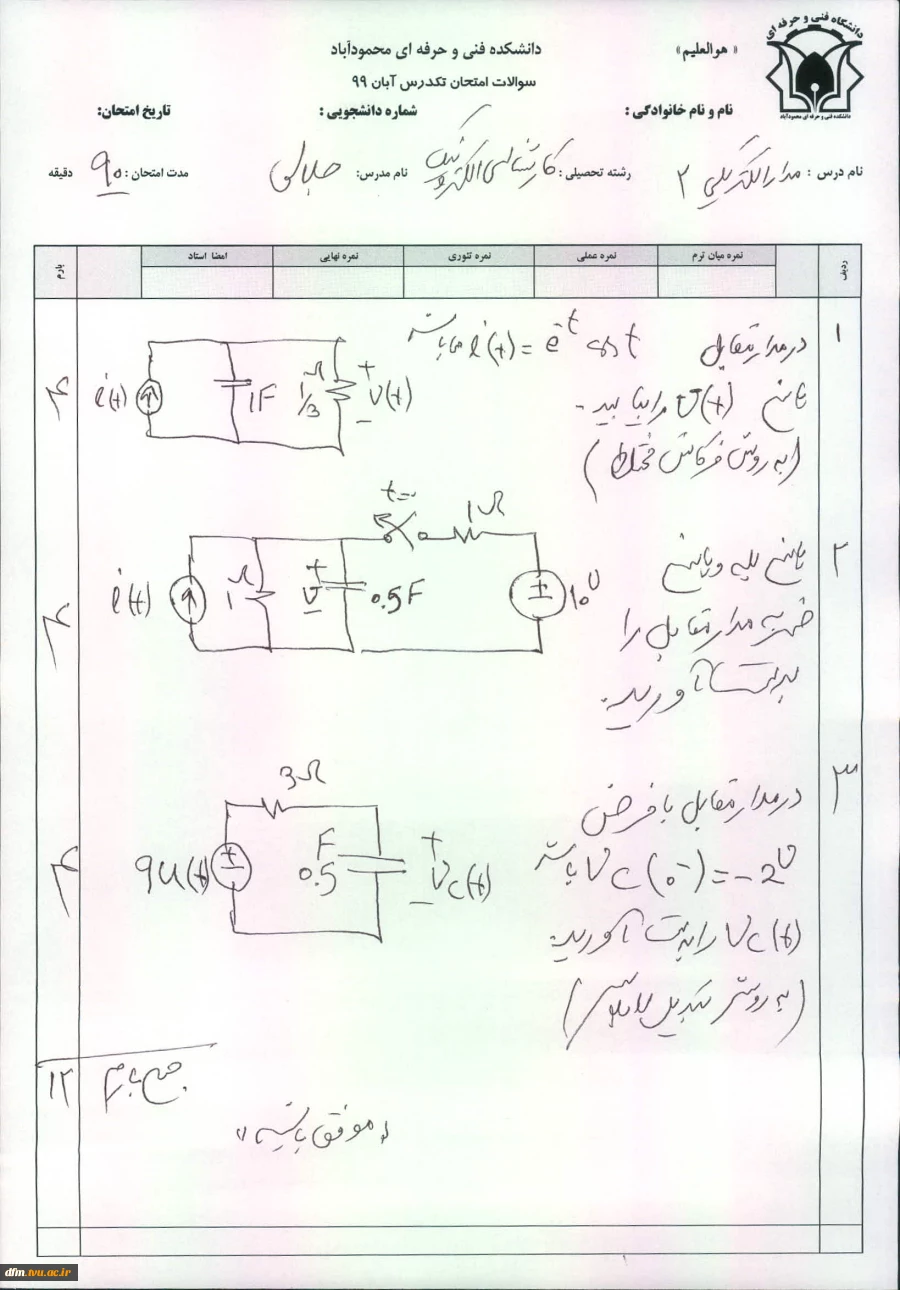 دانشگاه فنی و حرفه ای
دانشکده فنی و حرفه ای محمودآباد
« هوالعلیم»
دانشکده فنی و حرفه ای محمودآباد
سوالات امتحان تکدرس آبان ۹۹
نام و نام خانوادگی : شماره دانشجویی : تاریخ امتحان:
نام درس : مدار الکتریکی ۲ رشته تحصیلی : کارشناسی الکترونیک نام مدرس: جلالی مدت امتحان : ۹۰ دقیقه
ردیف نمره میان ترم نمره عملی نمره تئوری نمره نهایی امضا استاد بارم
۱ در مدار مقابل i(t) = e^-t cos t می باشد
پاسخ v(t) را بیابید.
(به روش فرکانس مختلط)
۴
i(t) 1F 1/3 Ω + v(t) -
۲ پاسخ پله و پاسخ
ضربه مدار مقابل را
بدست آورید.
۴
t=0 1Ω
i(t) 1 Ω + v - 0.5F 10v
۳ در مدار مقابل با فرض
Vc(0-) = -2v باشد
Vc(t) را بدست آورید.
(به روش تبدیل لاپلاس)
۴
3Ω
9u(t) F 0.5 + Vc(t) -
جمع بارم ۱۲
«موفق باشید»
dfm.tvu.ac.ir